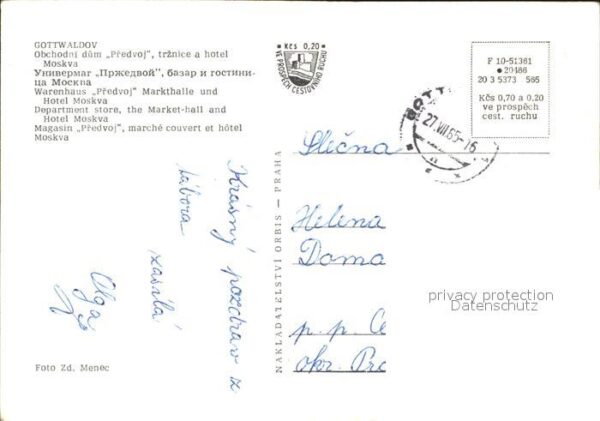 GOTTWALDOV
Obchodní dům „Předvoj", tržnice a hotel
Moskva
Универмаг „Пржедвой", базар и гостини-
ца Москва
Warenhaus „Předvoj" Markthalle und
Hotel Moskva
Department store, the Market-hall and
Hotel Moskva
Magasin „Předvoj", marché couvert et hôtel
Moskva
Kčs 0,20
VE PROSPĚCH CESTOVNÍHO RUCHU
F 10-51361
20486
20 3 5373 565
Kčs 0,70 a 0,20
ve prospěch
cest. ruchu
GOTT
27.VII.65-16
Slečna
Helena
Doma
p.p.
okr.
Krásný pozdrav z
tábora
zasílá
Olga
NAKLADATELSTVÍ ORBIS – PRAHA
privacy protection
Datenschutz
Foto Zd. Menec